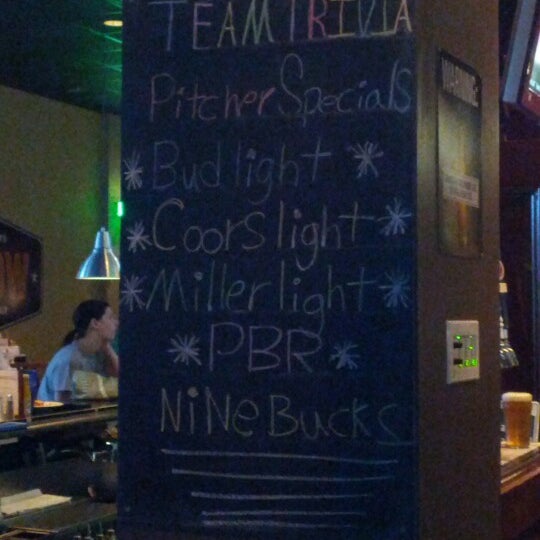 TEAM TRIVIA
Pitcher Specials
* Bud light *
* Coors light *
* Miller light *
* PBR *
NiNE BUCKS
WARNING